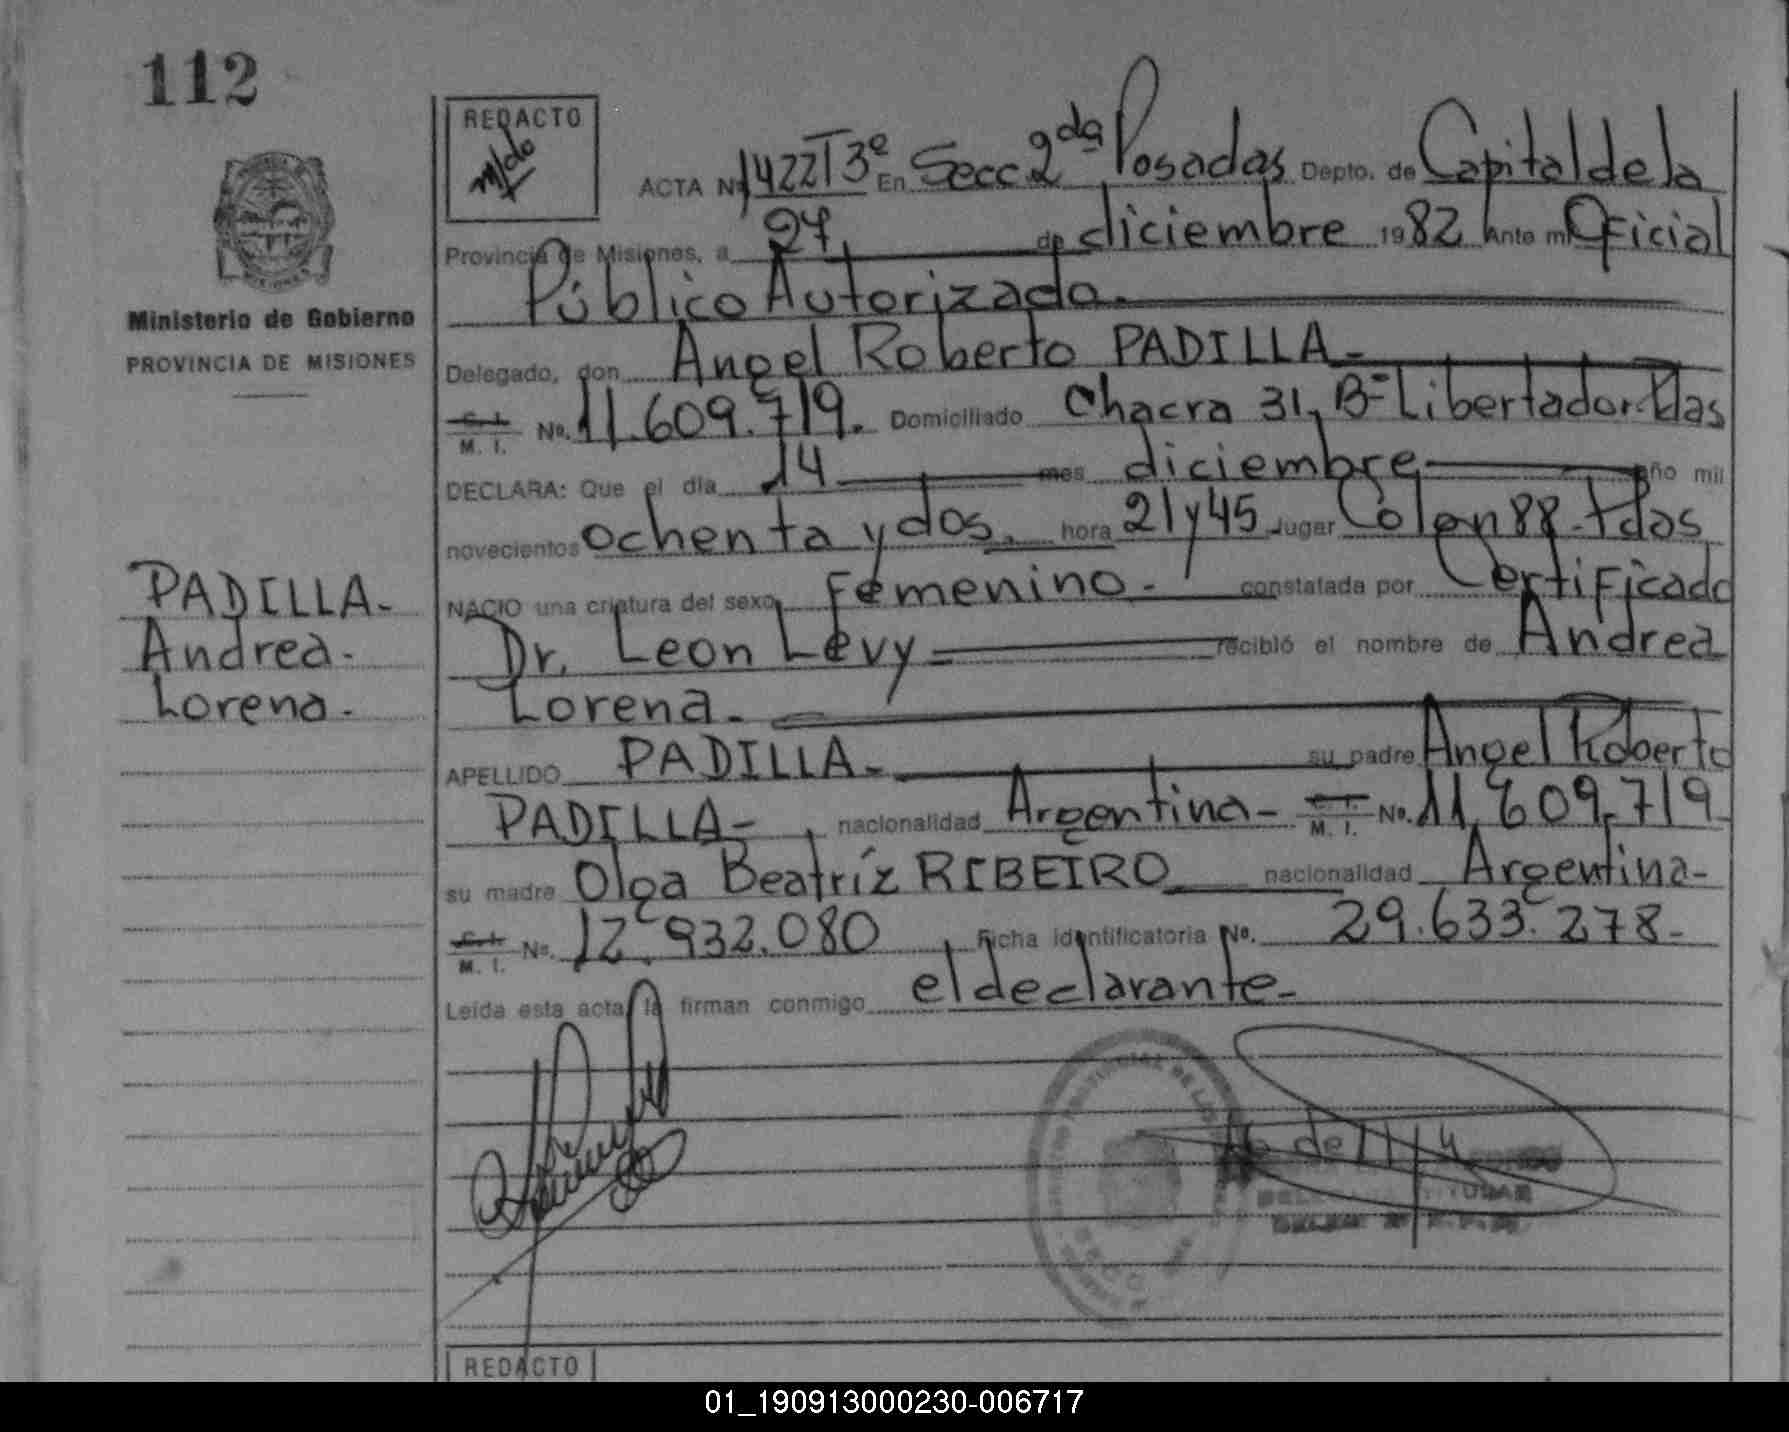 112
REDACTO
m/do
ACTA Nº 1422T3º En Secc 2da Posadas Depto. de Capital de la
Provincia de Misiones, a 27 de diciembre 1982 Ante mi Oficial
Público Autorizado.
Ministerio de Gobierno
PROVINCIA DE MISIONES
Delegado, don Angel Roberto PADILLA-
C. I. M. I. No. 11.609.719. Domiciliado Chacra 31, Bº Libertador-Pdas
DECLARA: Que el día 14 mes diciembre año mil
novecientos ochenta y dos. hora 21 y 45 Lugar Colon 88-Pdas
NACIO una criatura del sexo Femenino- constatada por Certificado
Dr. Leon Levy- recibió el nombre de Andrea
Lorena-
PADILLA-
Andrea-
Lorena-
APELLIDO PADILLA- su padre Angel Roberto
PADILLA-, nacionalidad Argentina- C. I. M. I. No. 11.609.719-
su madre Olga Beatríz RIBEIRO nacionalidad Argentina-
C. I. M. I. No. 12.932.080 Ficha identificatoria No. 29.633.278-
Leída esta acta la firman conmigo el declarante-
REDACTO
01_190913000230-006717